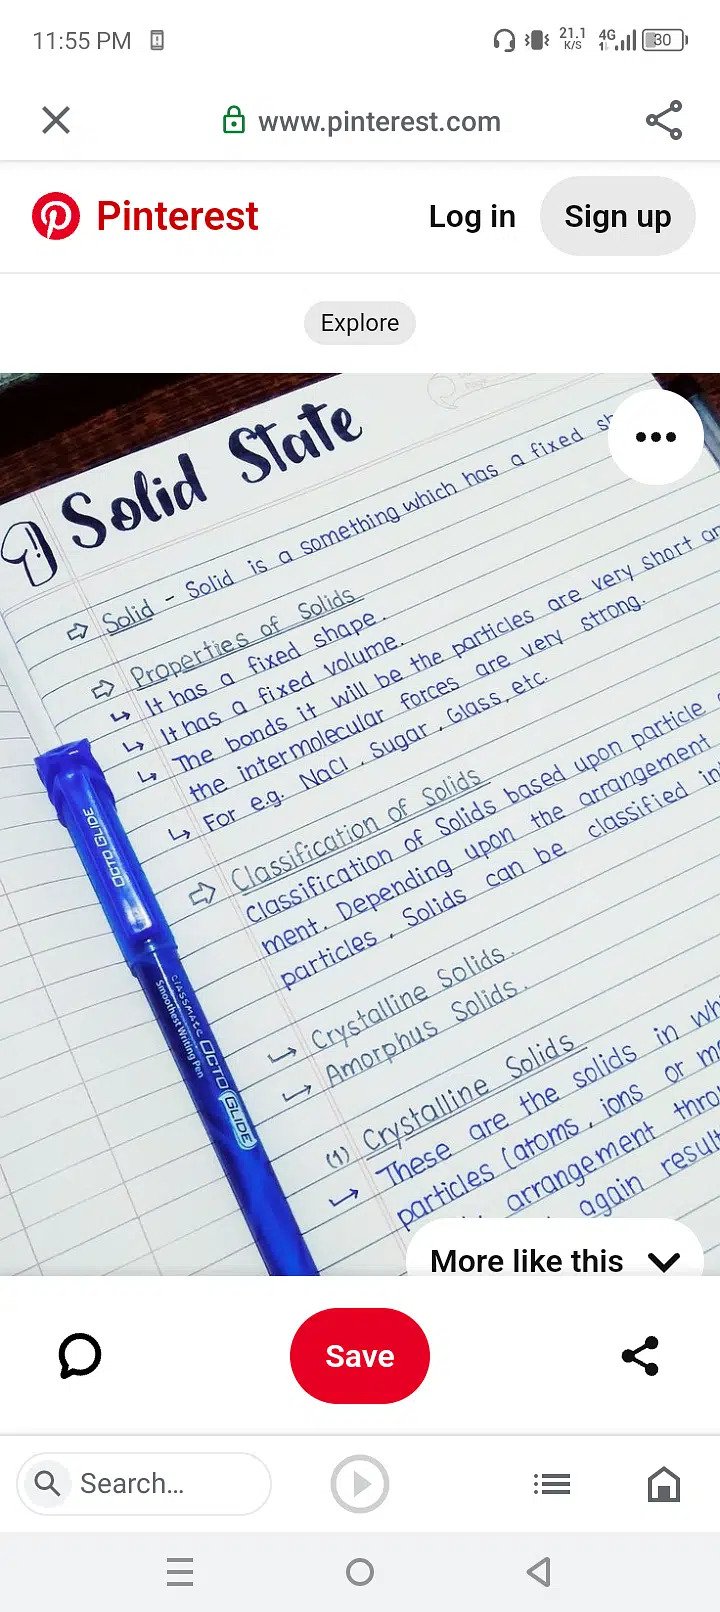 11:55 PM
21.1
K/S
4G
30
www.pinterest.com
Pinterest
Log in
Sign up
Explore
Solid State
Solid - Solid is a something which has a fixed
Properties of Solids
It has a fixed shape.
It has a fixed volume.
The bonds it will be the particles are very short
the intermolecular forces are very strong.
For e.g. NaCl, Sugar, Glass, etc.
Classification of Solids
Classification of Solids based upon particle
ment. Depending upon the arrangement
particles, Solids can be classified
Crystalline Solids.
Amorphus Solids.
(1) Crystalline Solids
These are the solids in
particles (atoms, ions or
arrangement
again
OCTO GLIDE
CLASSMATE OCTO GLIDE
Smoothest Writing Pen
More like this
Save
Search...